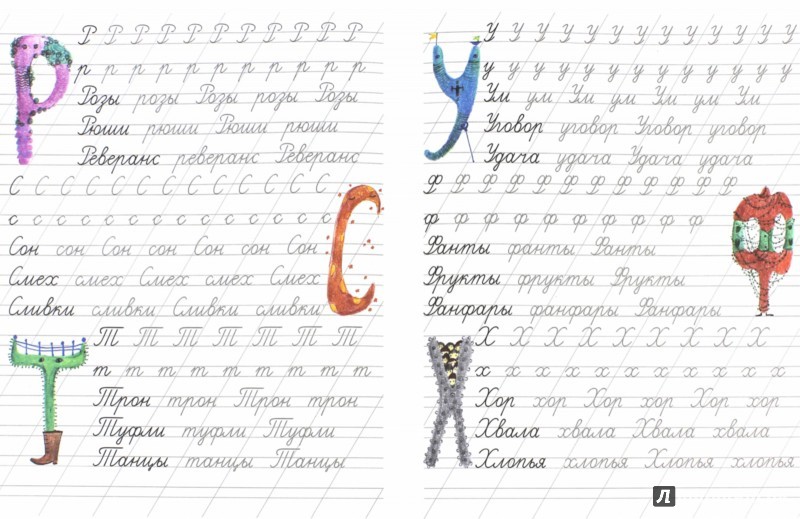 Р Р Р Р Р Р Р Р Р Р Р Р
р р р р р р р р р р р р
Розы розы Розы розы Розы
Рюши рюши Рюши рюши
Реверанс реверанс Реверанс
С С С С С С С С С С С С С
с с с с с с с с с с с с с
Сон сон Сон сон Сон сон Сон
Смех смех Смех смех Смех
Сливки сливки Сливки сливки
Т Т Т Т Т Т Т
т т т т т т т т т
Трон трон Трон трон
Туфли туфли Туфли
Танцы танцы Танцы
У У У У У У У У У У У У У
у у у у у у у у у у у у у
Ум ум Ум ум Ум ум Ум
Уговор уговор Уговор уговор
Удача удача Удача удача
Ф Ф Ф Ф Ф Ф Ф Ф Ф Ф Ф Ф
ф ф ф ф ф ф ф ф ф ф
Фанты фанты Фанты
Фрукты фрукты Фрукты
Фанфары фанфары Фанфары
Х Х Х Х Х Х Х Х Х
х х х х х х х х х х х
Хор хор Хор хор Хор хор
Хвала хвала Хвала хвала
Хлопья хлопья Хлопья хлопья